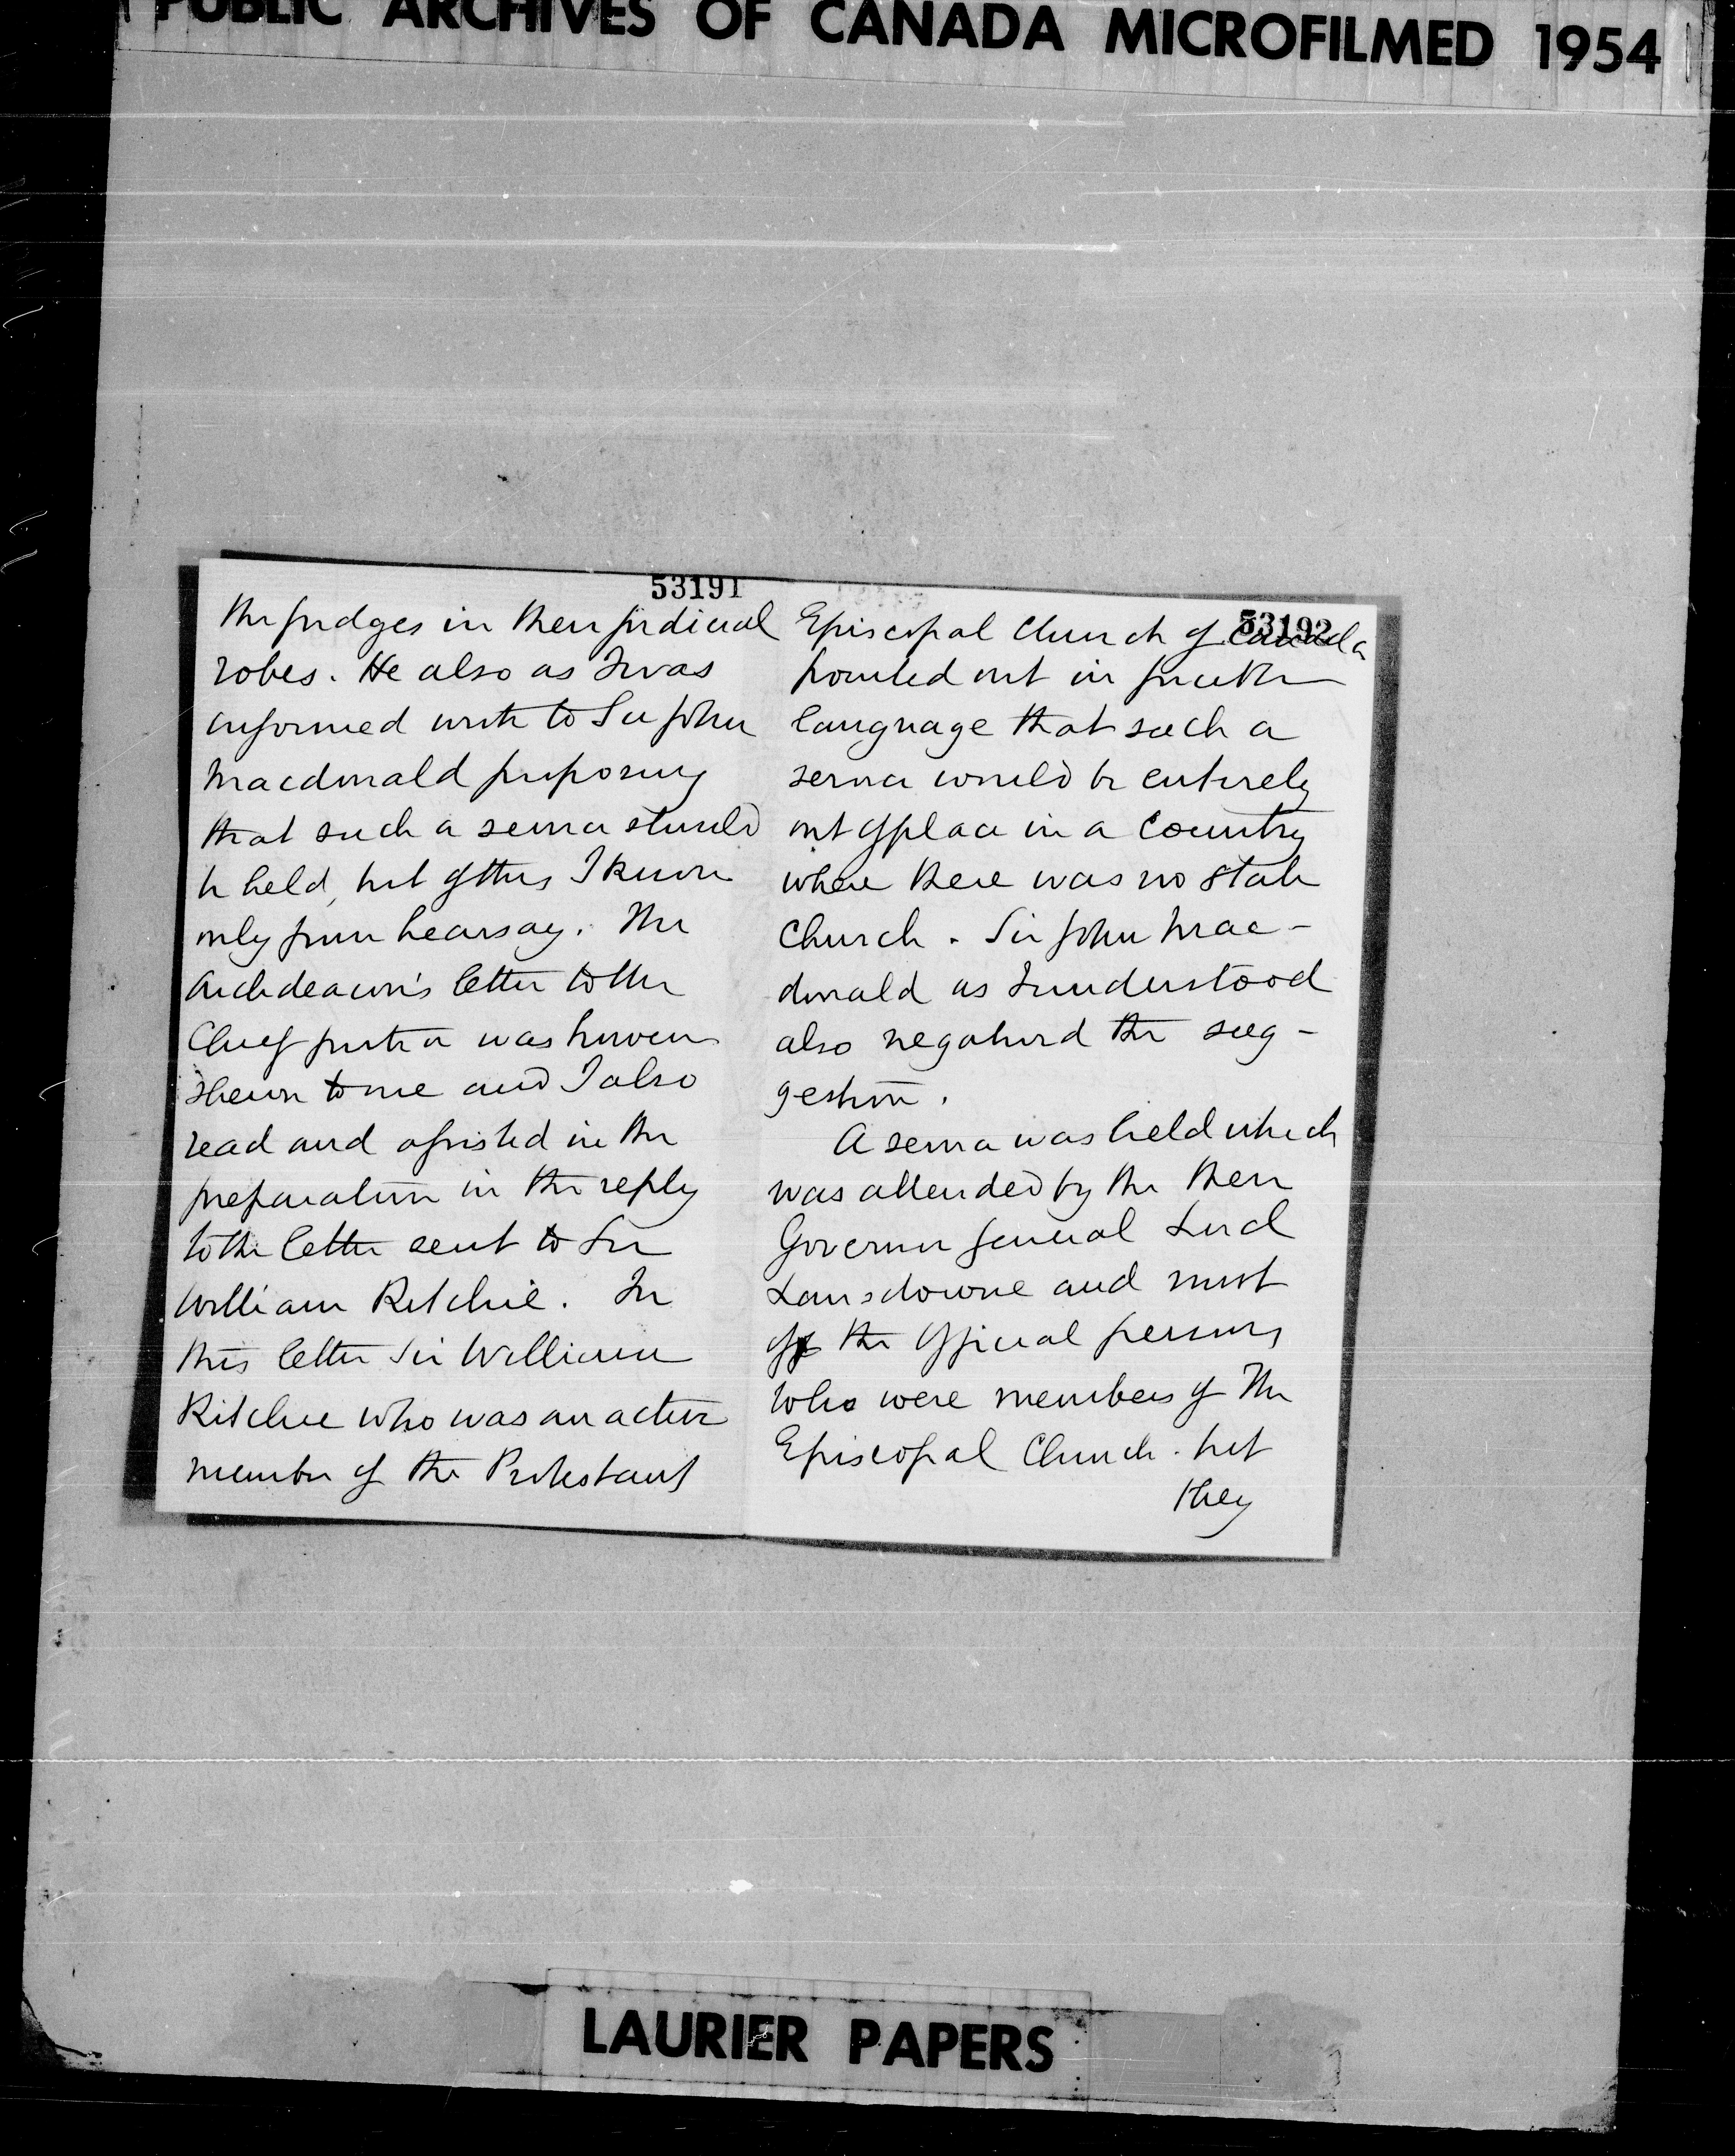 PUBLIC ARCHIVES OF CANADA MICROFILMED 1954
53191
the judges in their judicial
robes. He also as I was
informed wrote to Sir John
Macdonald proposing
that such a service should
be held, but of this I know
only from hearsay. The
Archdeacon's letter to the
Chief Justice was however
shewn to me and I also
read and assisted in the
preparation in the reply
to the letter sent to Sir
William Ritchie. In
this letter Sir William
Ritchie who was an active
member of the Protestant
53192
Episcopal Church of Canada
pointed out in
language that such a
service would be entirely
out of place in a Country
where there was no State
Church. Sir John Mac-
donald as I understood
also negatived the sug-
gestion.
A service was held which
was attended by the then
Governor General Lord
Lansdowne and most
of the official persons
who were members of The
Episcopal Church. but
they
LAURIER PAPERS